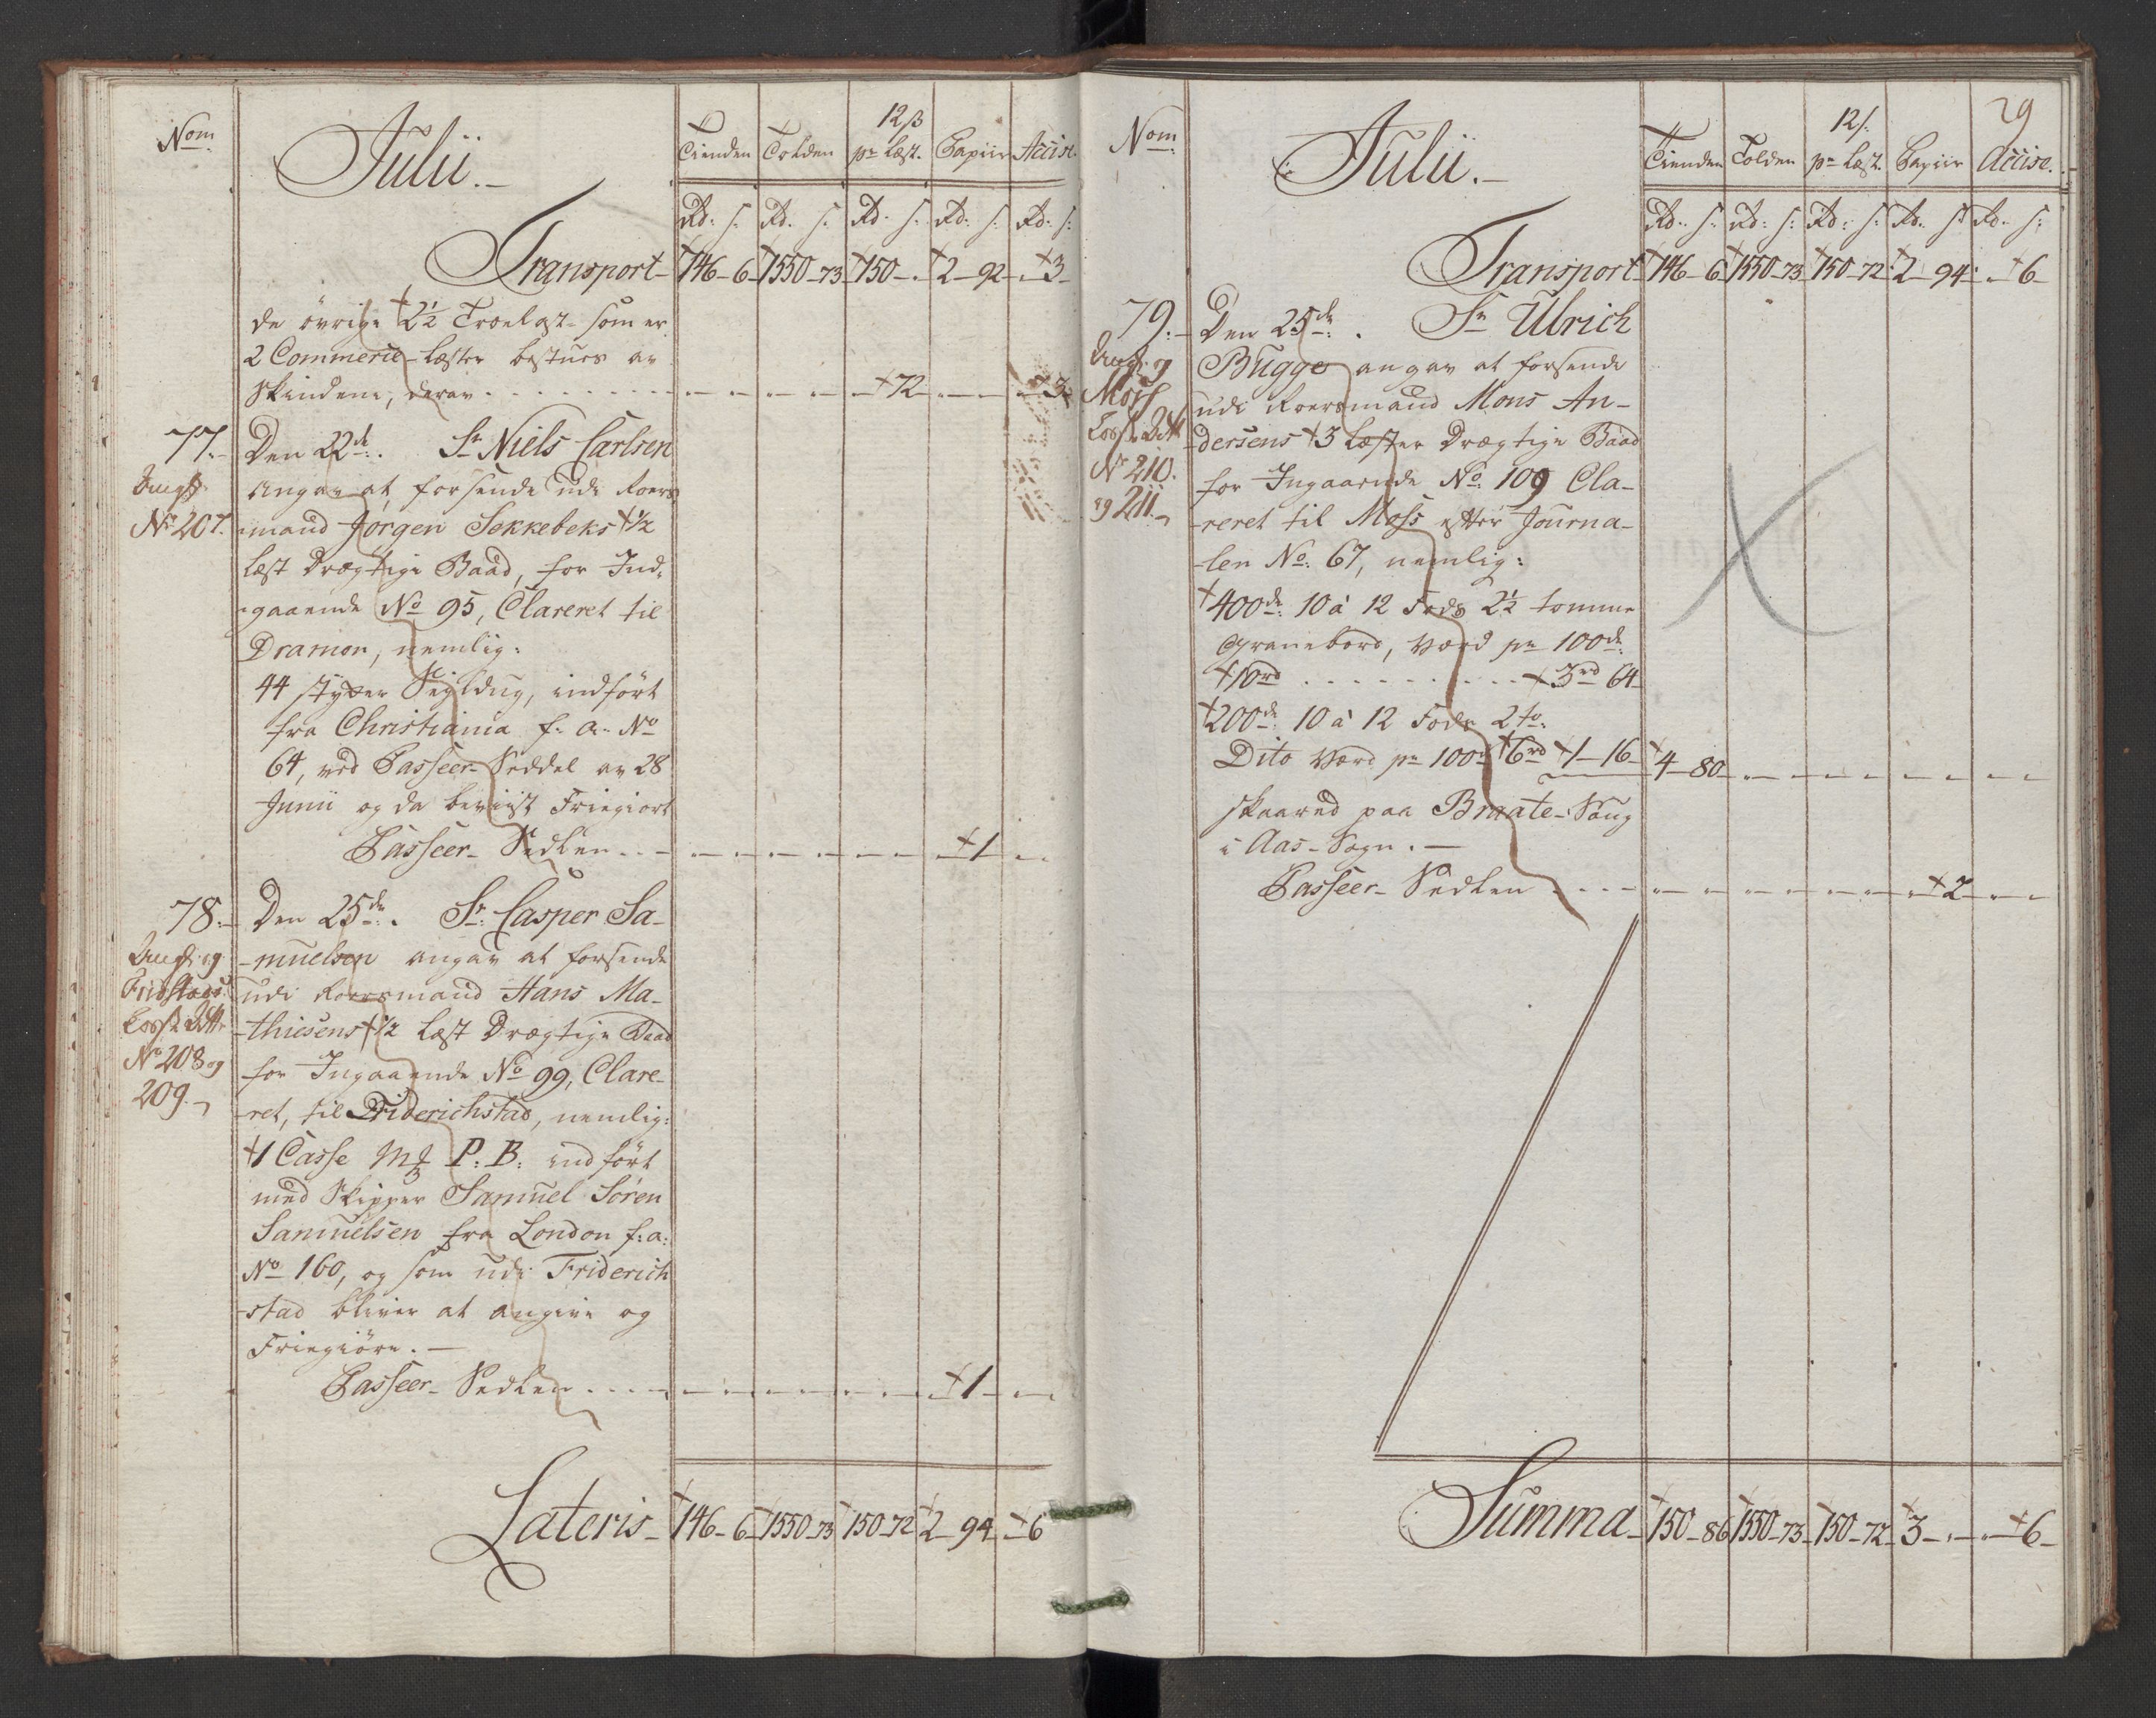 Nom.
Julii.
Tienden
Tolden
12 ß
pr Læst.
Papiir
Accise
Rd. s. Rd. s. Rd. s. Rd. s. Rd. s:
Transport 146 6 1550 73 150 - 2 92 - 3
de övrige 2½ Troelast som er
2 Commerce-Læster bestues av
Skindene, derav . . . . . 72 - 3
77.
Den 22de. Sr Niels Carlsen
Angav at forsende udi Roers
No 207.
mand Jörgen Sekkebeks ½
Læst Drægtige Baad, for Ind-
gaaende No 95, Clareret til
Dramen, nemlig:
44 stykker Seigldug, indfört
fra Christiania f. a. No
64, ved Passeer-Seddel av 28
Junii og da beviist Friegiort
Passeer-Sedlen . . 1
78.
Den 25de. Sr. Casper Sa-
muelsen angav at forsende
Fridstads
udi Roersmand Hans Ma-
thiesens ½ Læst Drægtige Baad
No 208 og
for Ingaaende No 99, Clare-
209.
ret, til Friderichstad, nemlig:
1 Casse P: B: indfört
med Skipper Samuel Sören
Samuelsen fra London f: a:
No 160, og som udi Friderich
stad bliver at angive og
Friegiöre.
Passeer-Sedlen . . . . 1
Lateris 146 6 1550 73 150 72 2 94 6
29
Nom.
Julii.
Tienden
Tolden
12 s.
pr Læst.
Papiir
Accise.
Rd. s. Rd: s: Rd: s: Rd. s Rd. s:
Transport 146 6 1550 73 150 72 2 94 6
79.
Den 25de. Sr Ulrich
Bugge angav at forsende
Moss
udi Roersmand Mons An-
dersens 3 Læster Drægtige Baad
No 210.
for Ingaaende No. 109 Cla-
og 211.
reret til Moss efter Journa-
len No. 67, nemlig:
400de 10 à 12 Fods 2½ tomme
Granebord, Værd pr 100de
10rd . . . . . . . 3rd 64
200de 10 à 12 Fods 2 to.
Dito Værd pr 100de 6rd 1 16 4 80
skaared paa Braate-Saug
i Aas-Sogn.
Passeer-Sedlen . . . . 2
Summa 150 86 1550 73 150 72 3 - - 6